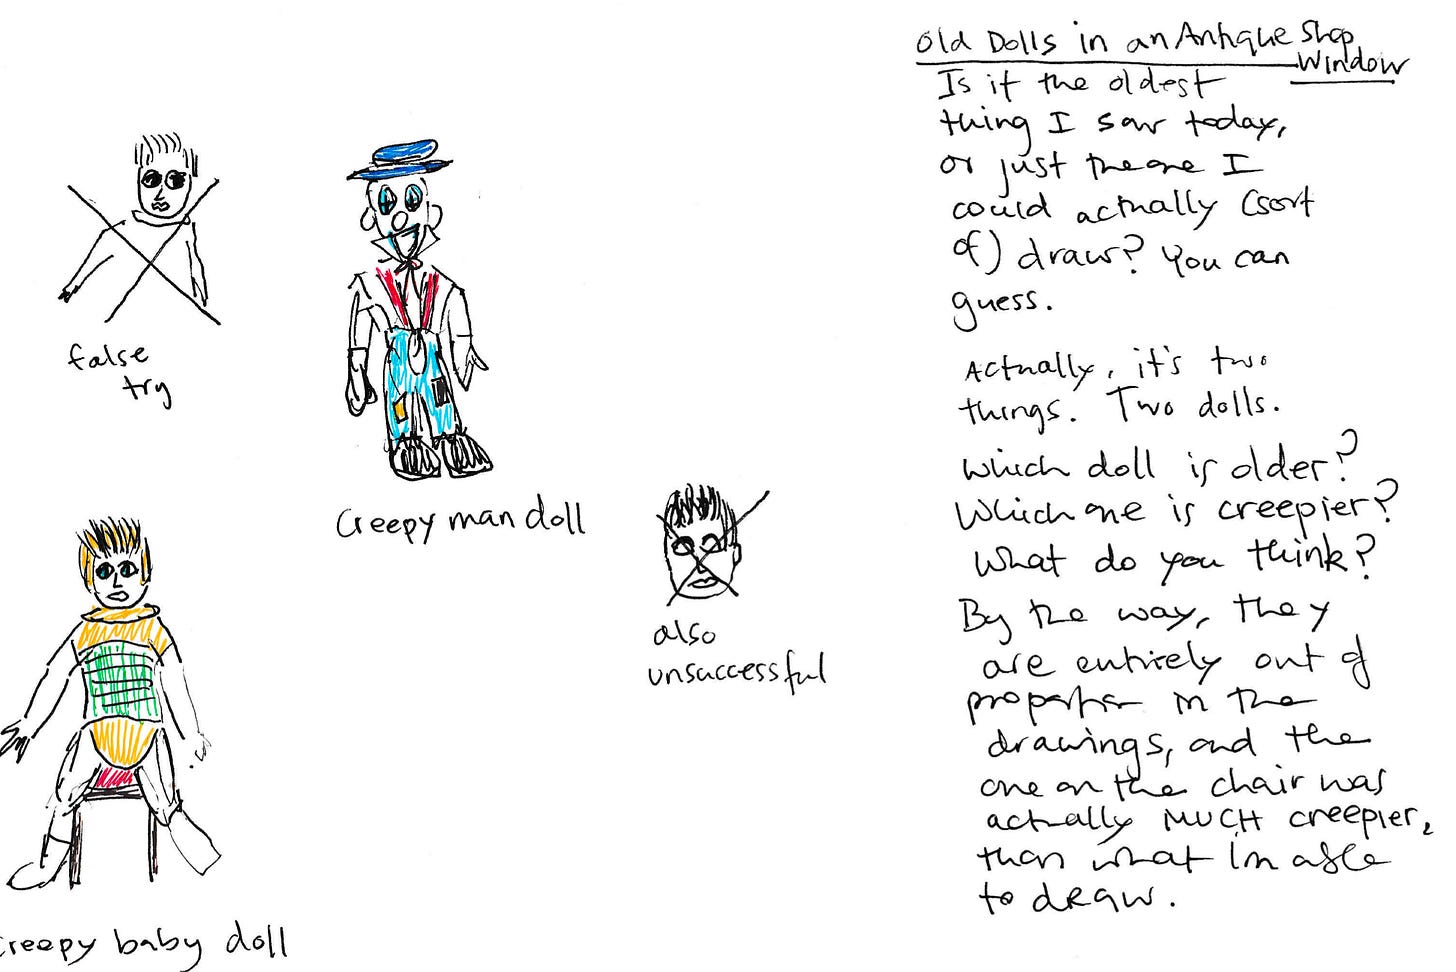 Old Dolls in an Antique Shop
Window
Is it the oldest
thing I saw today,
or just the one I
could actually (sort
of) draw? You can
guess.
Actually, it's two
things. Two dolls.
Which doll is older?
Which one is creepier?
What do you think?
By the way, they
are entirely out of
proportion in the
drawings, and the
one on the chair was
actually MUCH creepier,
than what I'm able
to draw.
false
try
Creepy man doll
also
unsuccessful
creepy baby doll